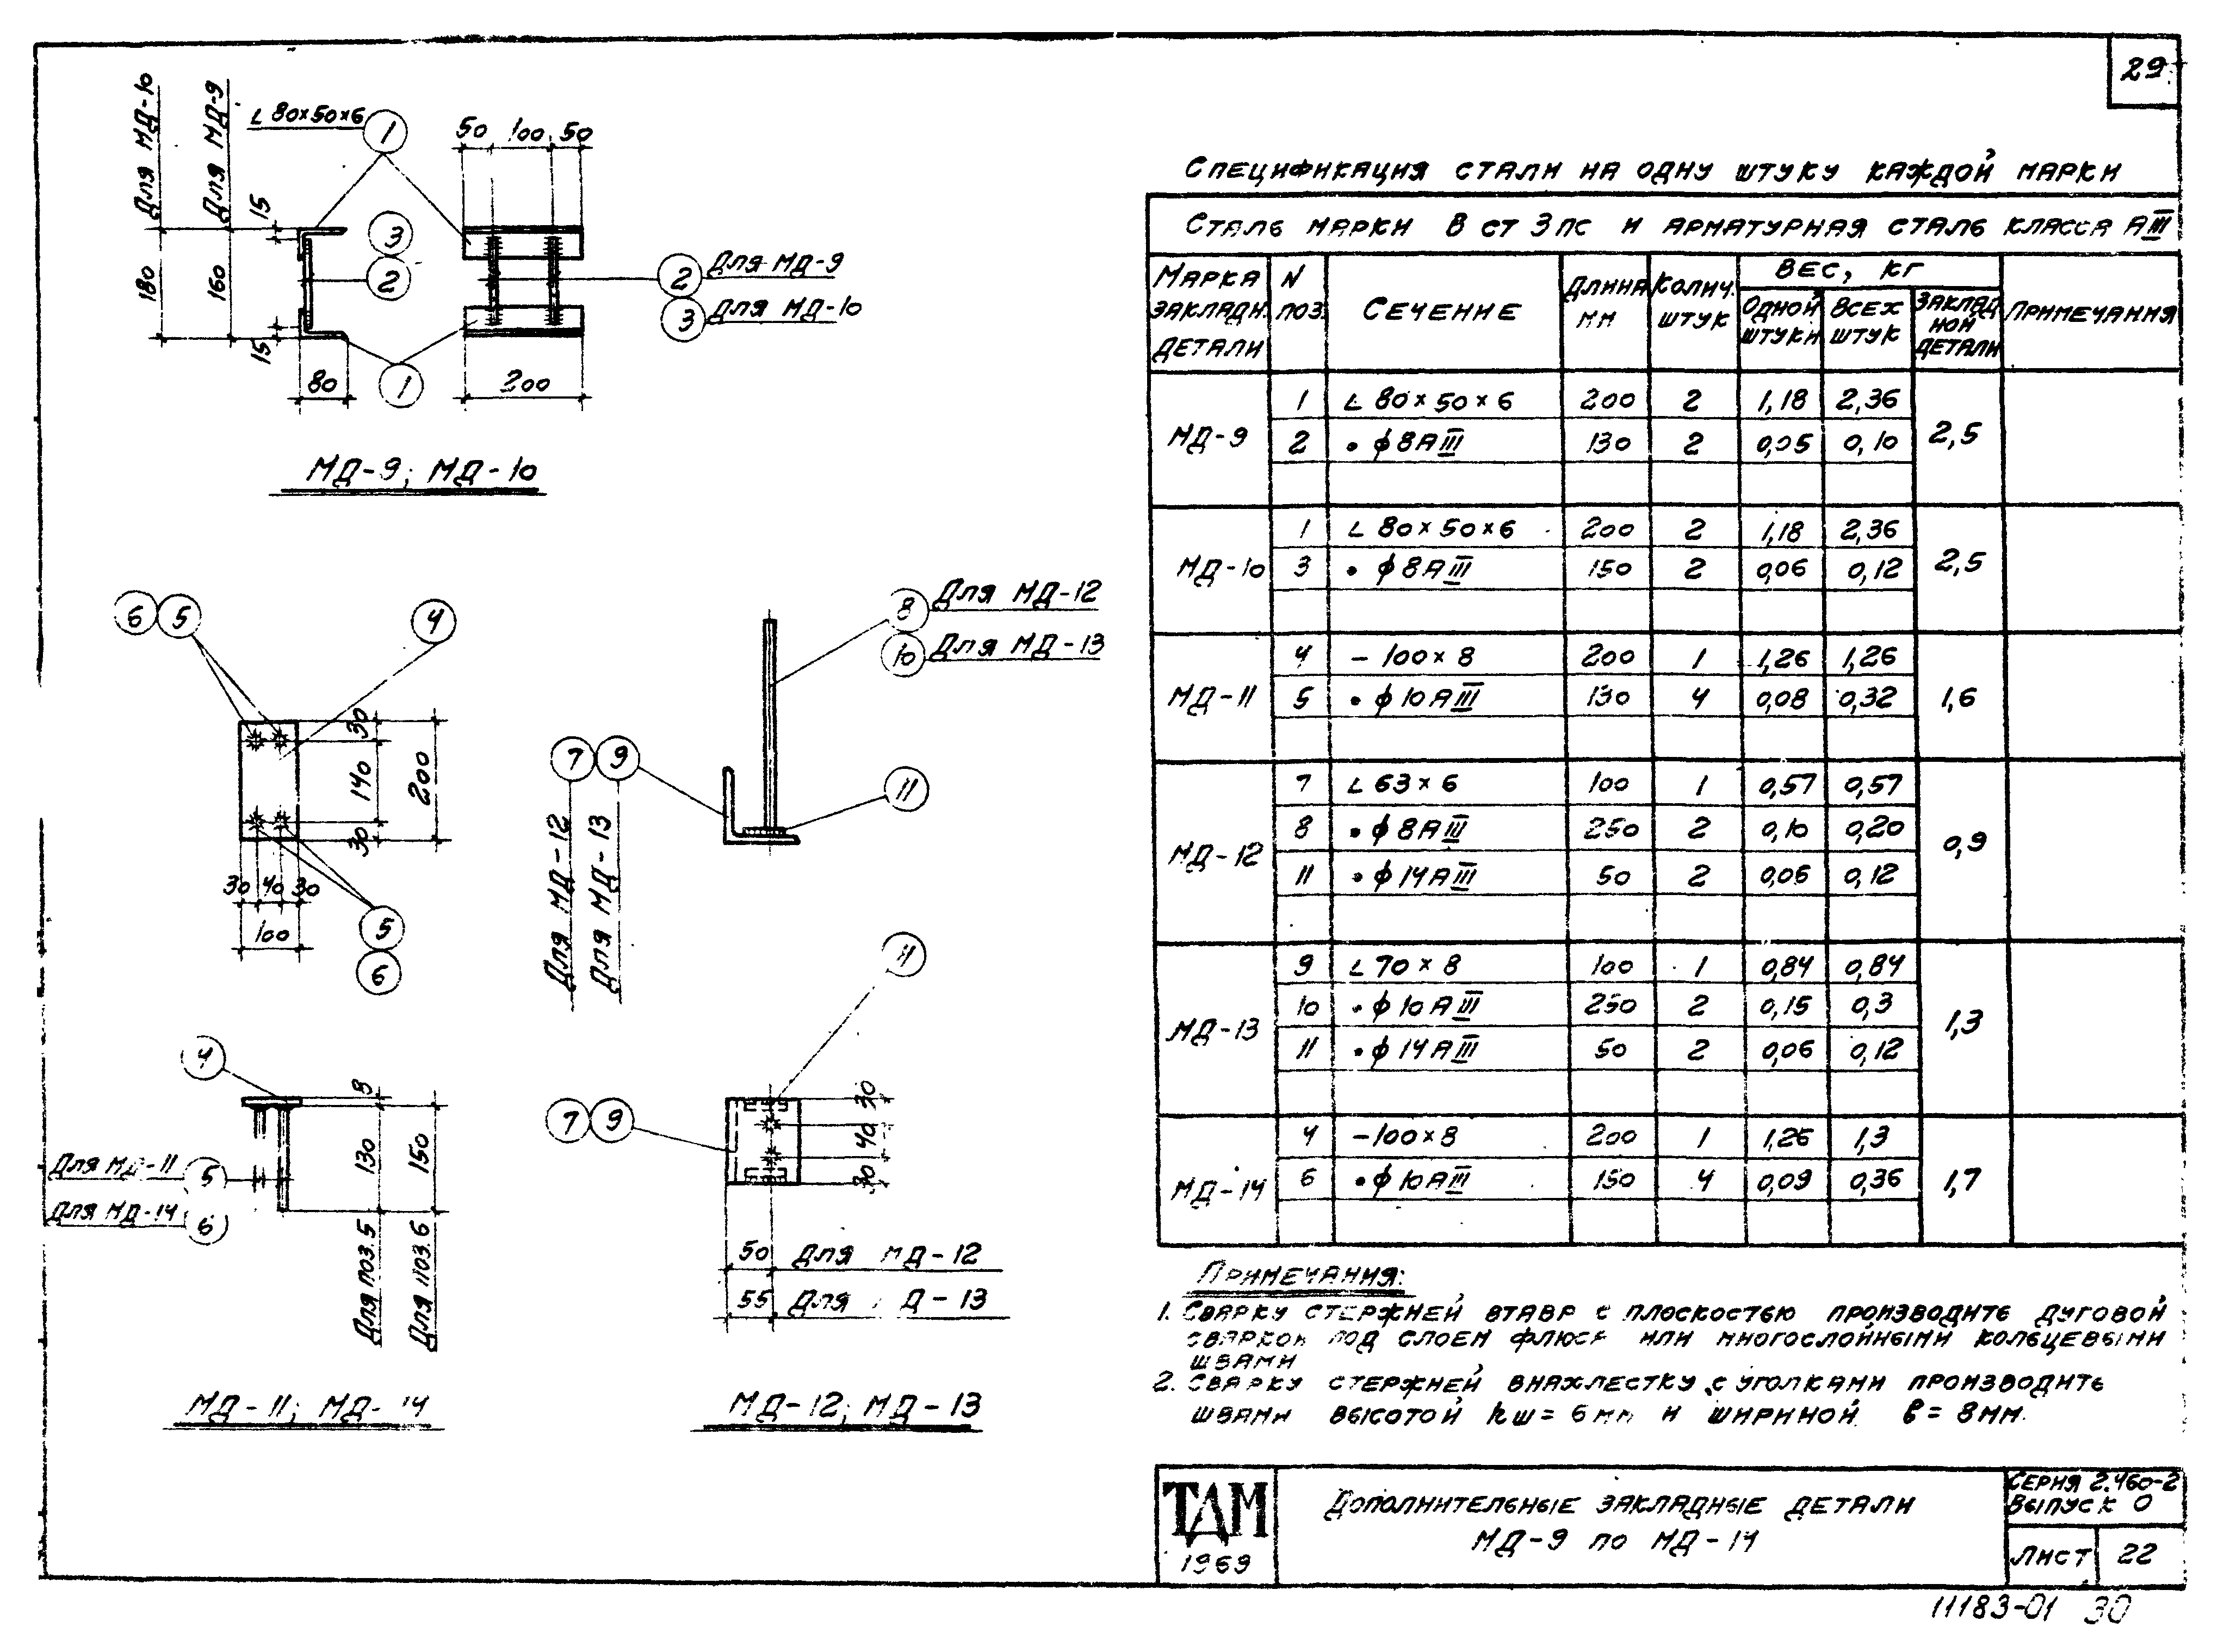 29
Для МД-10
Для МД-9
∟80×50×6
1
50 100 50
15
180
160
15
3
2
2 Для МД-9
3 Для МД-10
1
80
200
МД-9; МД-10
6 5 4
30
140
30
200
30 40 30
100
5
6
4
8
130
150
Для МД-11 5
Для МД-14 6
Для поз.5
Для поз.6
МД-11; МД-14
8 Для МД-12
10 Для МД-13
7 9
11
Для МД-12
Для МД-13
11
7 9
30
40
30
50 Для МД-12
55 Для Д-13
МД-12; МД-13
Спецификация стали на одну штуку каждой марки
Сталь марки В ст 3 пс и арматурная сталь класса АIII
Марка закладн. детали
N поз.
Сечение
Длина мм
Колич. штук
Вес, кг
Одной штуки
Всех штук
Заклад ной детали
Примечания
МД-9 1 ∟80×50×6 200 2 1,18 2,36 2,5
2 • ф8АIII 130 2 0,05 0,10
МД-10 1 ∟80×50×6 200 2 1,18 2,36 2,5
3 • ф8АIII 150 2 0,06 0,12
МД-11 4 – 100×8 200 1 1,26 1,26 1,6
5 • ф10АIII 130 4 0,08 0,32
МД-12 7 ∟63×6 100 1 0,57 0,57 0,9
8 • ф8АIII 250 2 0,10 0,20
11 • ф14АIII 50 2 0,06 0,12
МД-13 9 ∟70×8 100 1 0,84 0,84 1,3
10 • ф10АIII 250 2 0,15 0,3
11 • ф14АIII 50 2 0,06 0,12
МД-14 4 –100×8 200 1 1,26 1,3 1,7
6 • ф10АIII 150 4 0,09 0,36
Примечания:
1. Сварку стержней втавр с плоскостью производить дуговой
сваркой под слоем флюса или многослойными кольцевыми
швами
2. Сварку стержней внахлестку с уголками производить
швами высотой hш = 6 мм и шириной в = 8 мм.
ТДМ
1969
Дополнительные закладные детали
МД-9 по МД-14
Серия 2.460-2
Выпуск 0
Лист 22
11183-01 30